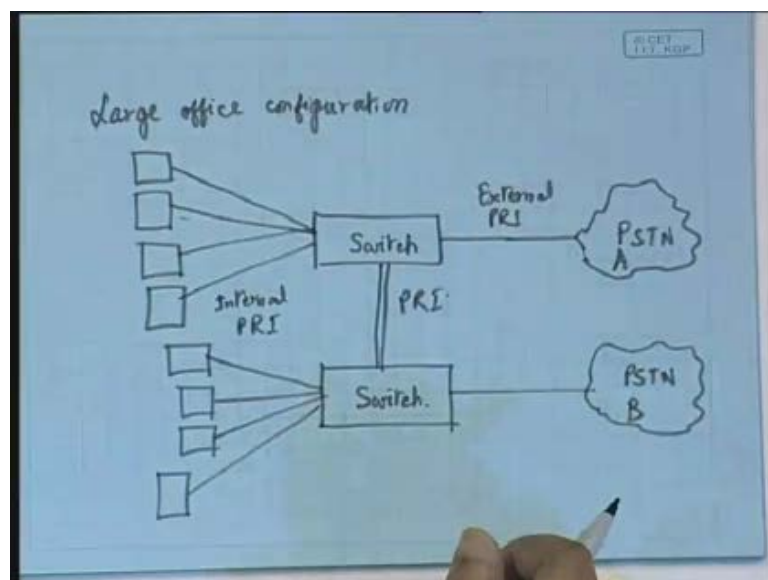 © CET
I.I.T. KGP
Large office configuration
External
PRI
Switch
PSTN
A
Internal
PRI
PRI
Switch.
PSTN
B